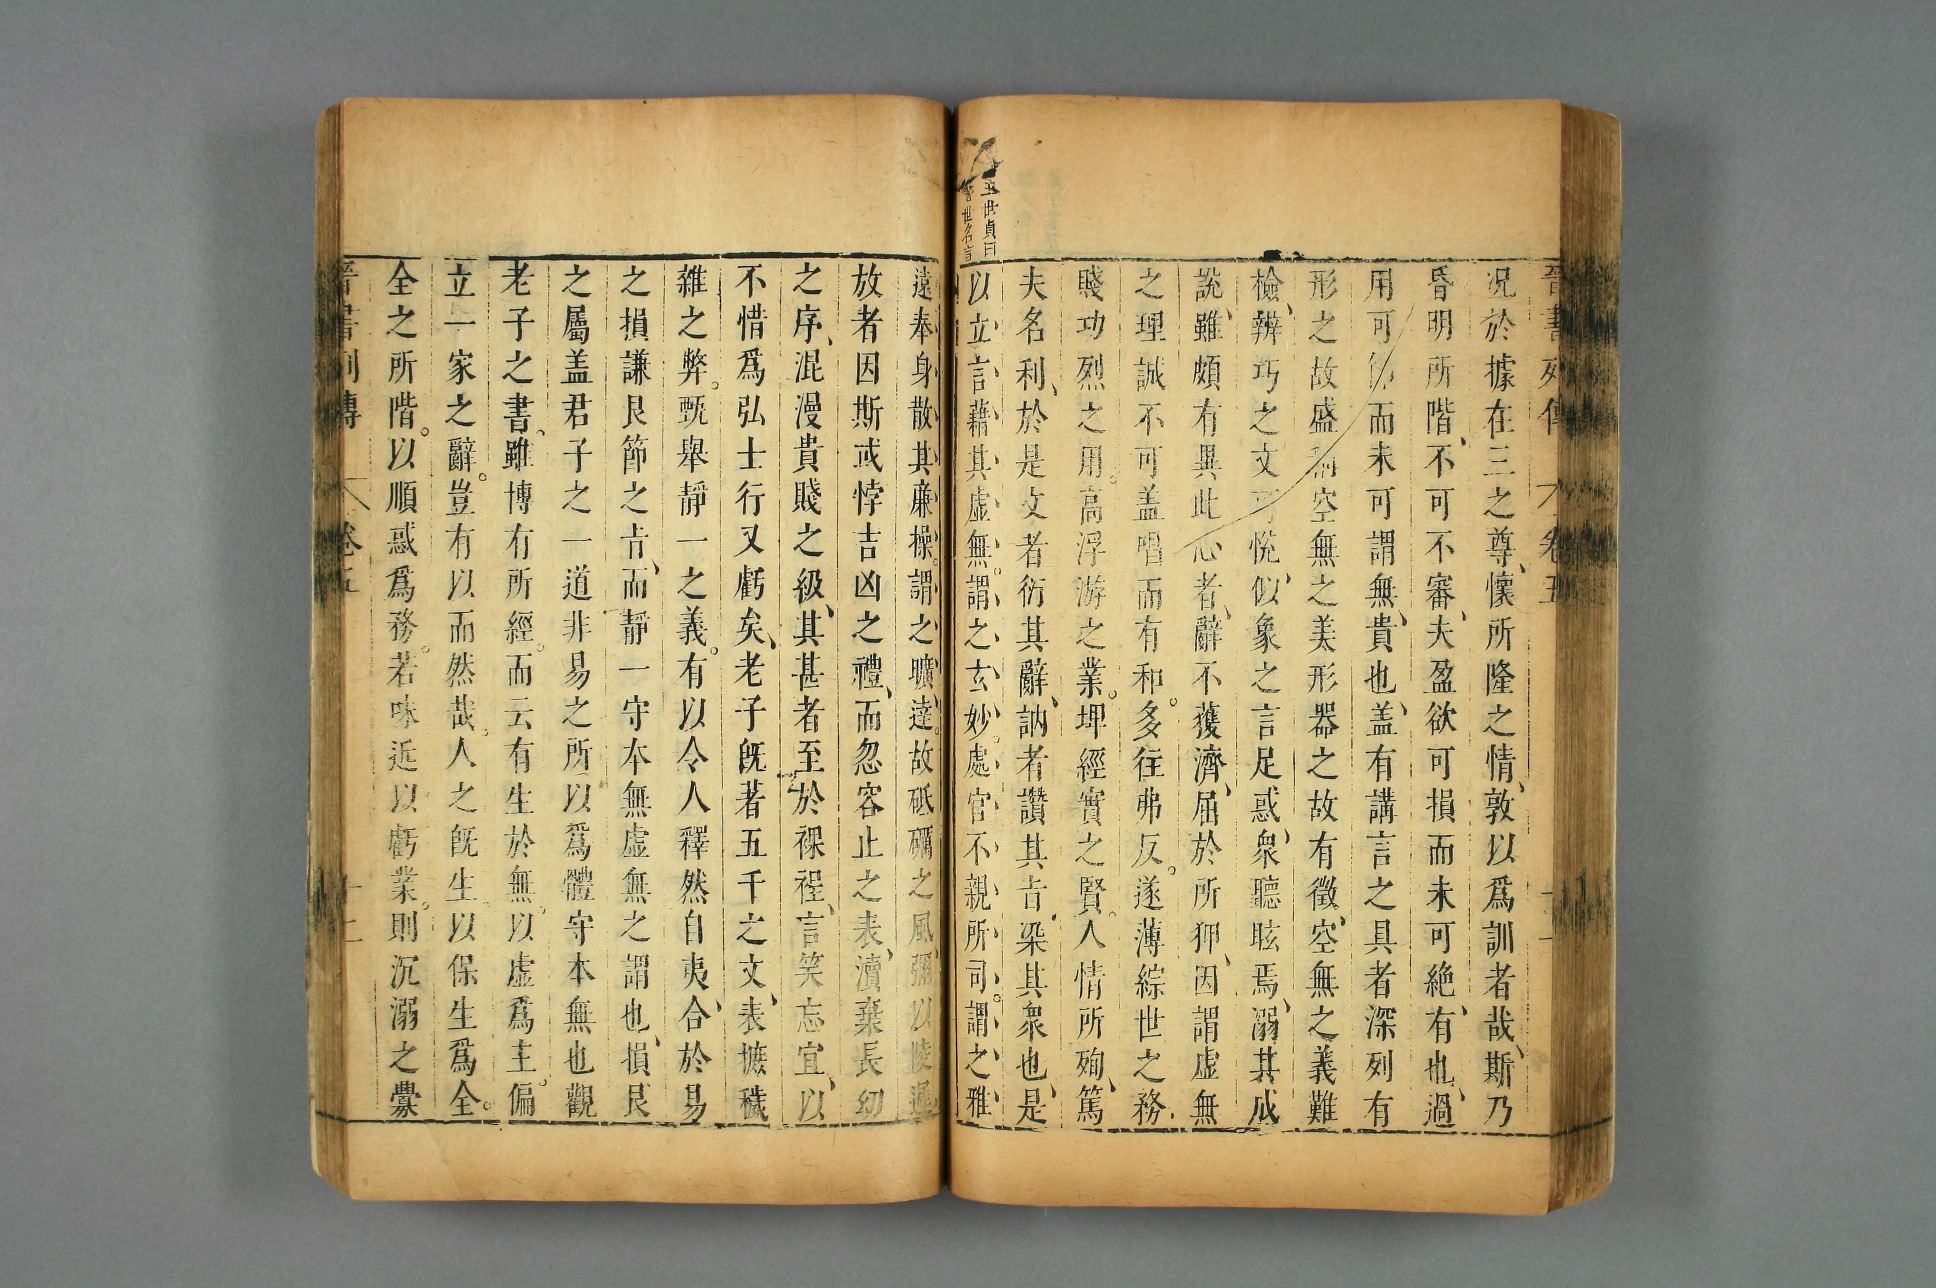 晉書列傳 卷五 十一
況於據在三之尊、懷所隆之情、敦以爲訓者哉、斯乃
昏明所階、不可不審、夫盈欲可損而未可絶、有也、過
用可節而未可謂無、貴也、盖有講言之具者深列有
形之故盛稱空無之美形器之故有徵、空無之義難
檢、辨巧之文可恱、似象之言足惑衆、聽眩焉、溺其成
說、雖頗有異此心者、辭不獲濟、屈於所狎、因謂虛無
之理誠不可盖唱而有和。多往弗反。遂薄綜世之務
賤功烈之用。高浮游之業。埤經實之賢。人情所殉、篤
夫名利、於是文者衍其辭、訥者讚其㫖染其衆也、是
以立言藉其虛無。謂之玄妙。處官不親所司。謂之雅
王世貞曰
警世名言
遠奉身散其廉操。謂之曠達。故砥礪之風彌以陵遲
放者因斯或悖吉凶之禮、而忽容止之表、瀆棄長幼
之序、混漫貴賤之級、其甚者至於裸裎、言笑忘宜、以
不惜爲弘士行又虧矣、老子旣著五千之文、表摭穢
雜之弊。甄舉靜一之義。有以令人釋然自夷、合於易
之損謙艮節之㫖、而靜一守本無虛無之謂也、損艮
之屬盖君子之一道非易之所以爲體守本無也觀
老子之書、雖博有所經。而云有生於無。以虛爲主。偏
立一家之辭。豈有以而然哉。人之旣生。以保生爲全。
全之所階。以順惑爲務。若味近以虧業。則沉溺之釁
晉書列傳 卷五 十二